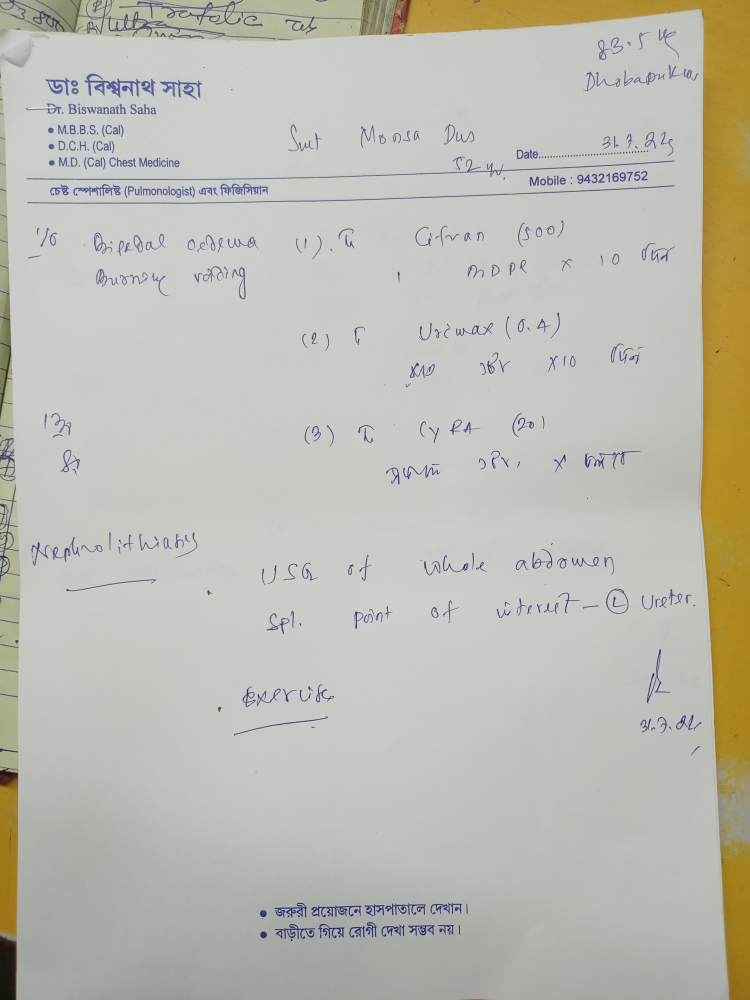 83.5 kg
Dhobapukur
ডাঃ বিশ্বনাথ সাহা
Dr. Biswanath Saha
• M.B.B.S. (Cal)
• D.C.H. (Cal)
• M.D. (Cal) Chest Medicine
Smt Monsa Das
52 yr.
Date
31.7.22
চেষ্ট স্পেশালিষ্ট (Pulmonologist) এবং ফিজিসিয়ান
Mobile : 9432169752
Bipedal oedema (1). T Cifran (500)
Burning voiding
x 10 দিন
(2) T Urimax (0.4)
x10 দিন
(3) T CYRA (20)
Nephrolithiasis
USG of whole abdomen
Spl. point of interest - (L) Ureter.
• Exercise
31.7.22
• জরুরী প্রয়োজনে হাসপাতালে দেখান।
• বাড়ীতে গিয়ে রোগী দেখা সম্ভব নয়।